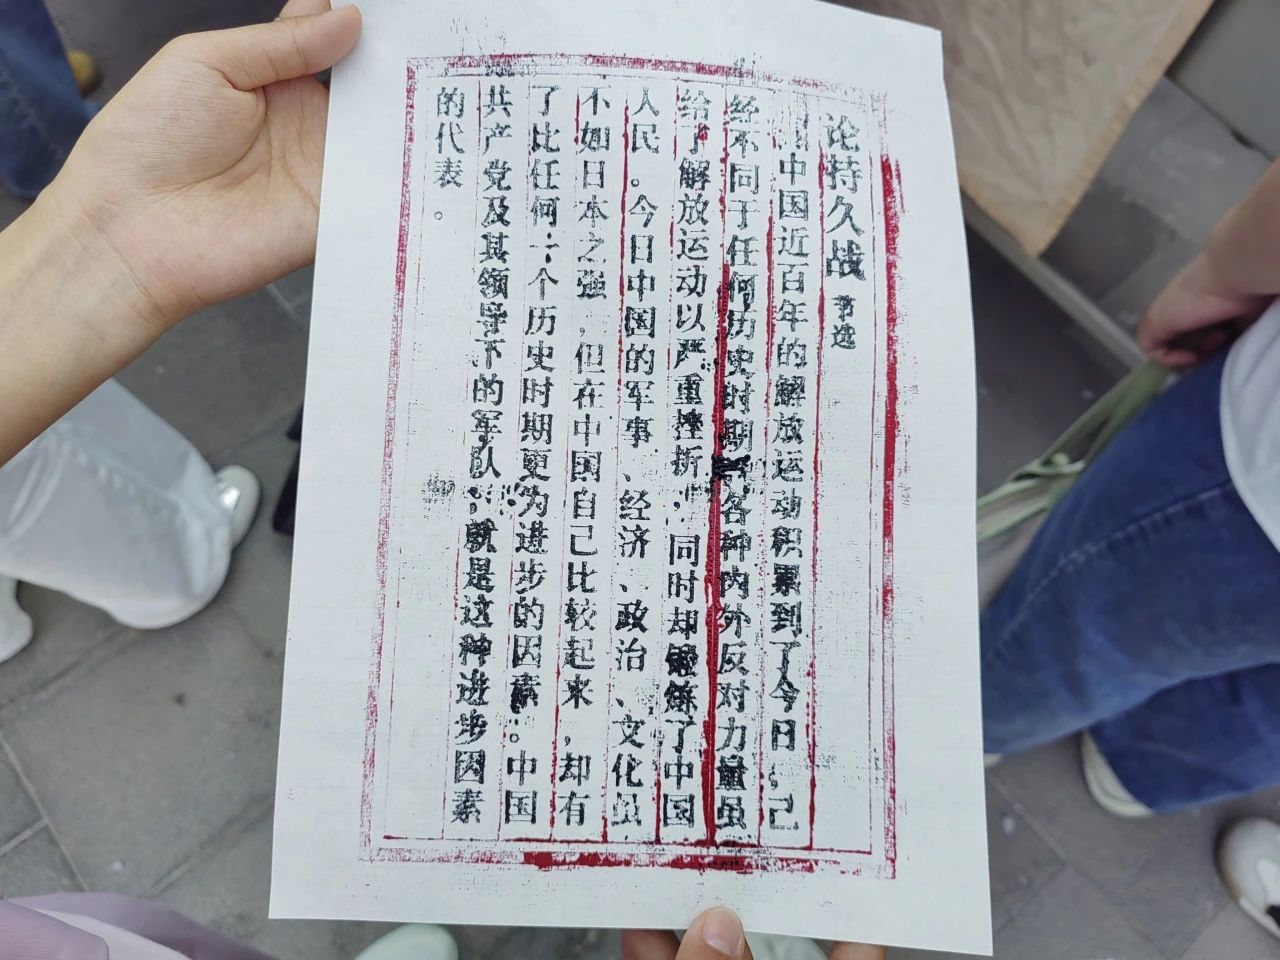 论持久战 节选
中国近百年的解放运动积累到了今日，已
经不同于任何历史时期。各种内外反对力量虽
给了解放运动以严重挫折，同时却锻炼了中国
人民。今日中国的军事、经济、政治、文化虽
不如日本之强，但在中国自己比较起来，却有
了比任何一个历史时期更为进步的因素。中国
共产党及其领导下的军队，就是这种进步因素
的代表。